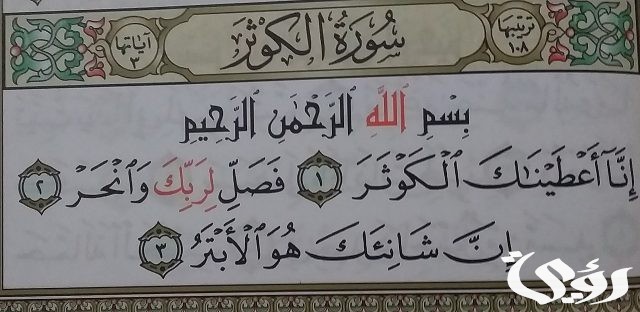 آيَاتُهَا ٣ سُورَةُ الكَوْثَرِ تَرْتِيبُهَا ١٠٨
بِسْمِ ٱللَّهِ ٱلرَّحْمَٰنِ ٱلرَّحِيمِ
إِنَّآ أَعْطَيْنَٰكَ ٱلْكَوْثَرَ ١ فَصَلِّ لِرَبِّكَ وَٱنْحَرْ ٢
إِنَّ شَانِئَكَ هُوَ ٱلْأَبْتَرُ ٣
رؤيا